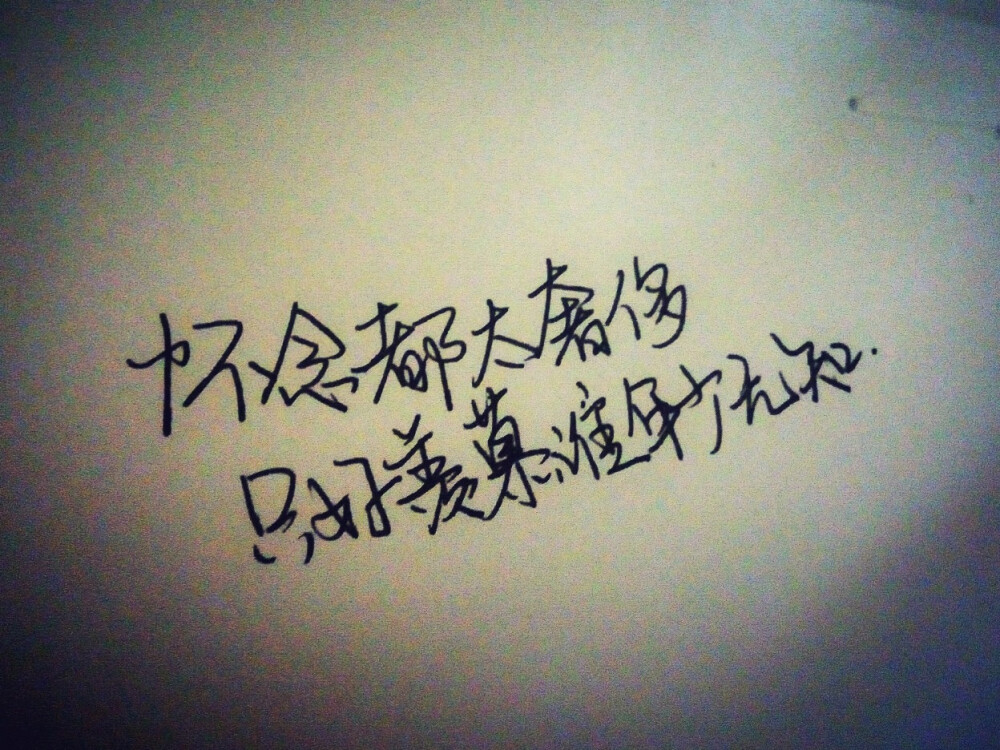 怀念都太奢侈
只好羡慕谁年少无知.